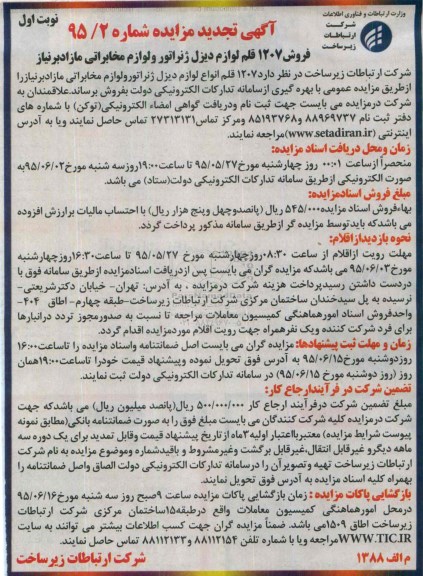 وزارت ارتباطات و فناوری اطلاعات
شرکت
ارتباطات
زیرساخت
نوبت اول
آگهی تجدید مزایده شماره ۹۵/۲
فروش ۱۲۰۷ قلم لوازم دیزل ژنراتور ولوازم مخابراتی مازادبرنیاز
شرکت ارتباطات زیرساخت در نظر دارد ۱۲۰۷ قلم انواع لوازم دیزل ژنراتورولوازم مخابراتی مازادبرنیازرا
ازطریق مزایده عمومی با بهره گیری ازسامانه تدارکات الکترونیکی دولت بفروش برساند.علاقمندان به
شرکت درمزایده می بایست جهت ثبت نام ودریافت گواهی امضاء الکترونیکی(توکن) با شماره های
دفتر ثبت نام ۸۸۹۶۹۷۳۷ و۸۵۱۹۳۷۶۸ ومرکز تماس۲۷۳۱۳۱۳۱ تماس حاصل نمایند ویا به آدرس
اینترنتی (www.setadiran.ir)مراجعه نمایند.
زمان ومحل دریافت اسناد مزایده:
منحصراً ازساعت ۰۰:۰۱ روز چهارشنبه مورخ ۹۵/۰۵/۲۷ تا ساعت۱۹:۰۰روزسه شنبه مورخ۹۵/۰۶/۰۲به
صورت الکترونیکی ازطریق سامانه تدارکات الکترونیکی دولت(ستاد) می باشد.
مبلغ فروش اسنادمزایده:
بهاءفروش اسناد مزایده۵۴۵/۰۰۰ ریال (پانصدوچهل وپنج هزار ریال) با احتساب مالیات برارزش افزوده
می باشدکه بایدتوسط مزایده گر ازطریق سامانه مذکور پرداخت گردد.
نحوه بازدیدازاقلام:
مهلت رویت ازاقلام از ساعت ۰۸:۳۰روزچهارشنبه مورخ ۹۵/۰۵/۲۷ تا ساعت۱۶:۳۰روزچهارشنبه
مورخ۹۵/۰۶/۰۳ می باشدکه مزایده گران می بایست پس ازدریافت اسنادمزایده ازطریق سامانه فوق با
دردست داشتن رسیدپرداخت هزینه شرکت درمزایده ، به آدرس: تهران- خیابان دکترشریعتی-
نرسیده به پل سیدخندان ساختمان مرکزی شرکت ارتباطات زیرساخت-طبقه چهارم- اطاق ۴۰۴-
واحدفروش اسناد امورهماهنگی کمیسیون معاملات مراجعه تا نسبت به صدورمجوز تردد درانبارها
برای فرد شرکت کننده ویک نفرهمراه جهت رویت اقلام موردمزایده اقدام گردد.
زمان و مهلت ثبت پیشنهادها: مزایده گران می بایست اصل ضمانتنامه واسناد مزایده را تاساعت۱۶:۰۰
روزدوشنبه مورخ۹۵/۰۶/۱۵ به آدرس فوق تحویل نموده وپیشنهاد قیمت خودرا تاساعت۱۹:۰۰همان
روز (روز دوشنبه مورخ ۹۵/۰۶/۱۵) در سامانه تدارکات الکترونیکی دولت ثبت نمایند.
تضمین شرکت در فرآیندارجاع کار:
مبلغ تضمین شرکت درفرآیند ارجاع کار ۵۰۰/۰۰۰/۰۰۰ ریال(پانصد میلیون ریال) می باشدکه جهت
شرکت درمزایده کلیه شرکت کنندگان می بایست مبلغ فوق را به صورت ضمانتنامه بانکی(مطابق نمونه
پیوست شرایط مزایده) معتبربااعتبار اولیه۳ماه ازتاریخ پیشنهاد قیمت وقابل تمدید برای یک دوره سه
ماهه دیگرو غیرقابل انتقال،غیرقابل برگشت وغیرمشروط و باقیدشماره وموضوع مزایده به نام شرکت
ارتباطات زیرساخت تهیه وتصویرآن را درسامانه تدارکات الکترونیکی دولت الصاق واصل ضمانتنامه را
بهمراه کلیه اسناد مزایده به آدرس فوق تحویل نمایند.
بازگشایی پاکات مزایده : زمان بازگشایی پاکات مزایده ساعت ۹صبح روز سه شنبه مورخ۹۵/۰۶/۱۶
درمحل امورهماهنگی کمیسیون معاملات واقع درطبقه۱۵ساختمان مرکزی شرکت ارتباطات
زیرساخت اطاق ۱۵۰۹می باشد. ضمناً مزایده گران جهت کسب اطلاعات بیشتر می توانند به سایت
WWW.TIC.IRمراجعه ویا با شماره تلفن ۸۸۱۱۲۱۵۴ و ۸۸۱۱۲۱۳۳ تماس حاصل نمایند.
م الف ۱۳۸۸
شرکت ارتباطات زیرساخت